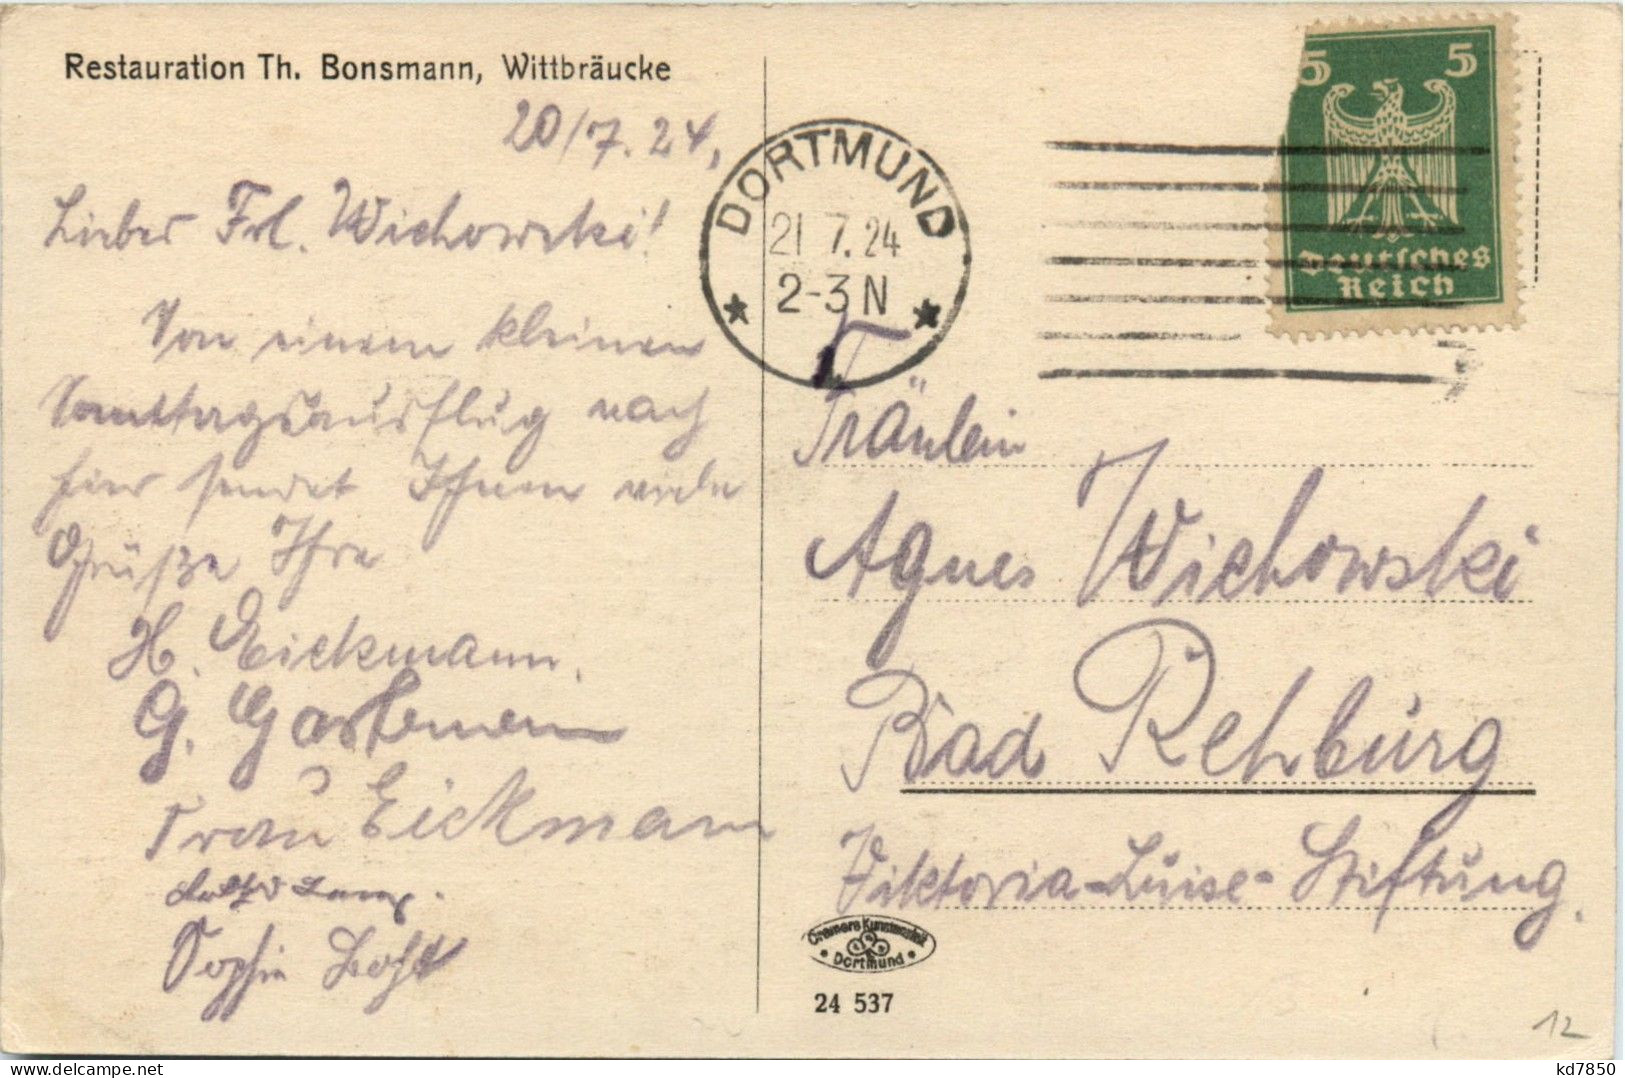 Restauration Th. Bonsmann, Wittbräucke
20/7. 24,
Lieber Frl. Wichowski!
Von einem kleinen
Sonntagsausflug nach
hier sendet Ihnen viele
Grüße Ihre
H. Eickmann.
G.
Frau Eickmann
Sophie
DORTMUND
21 7. 24
2-3 N
5 5
Deutsches
Reich
Fräulein
Agnes Wichowski
Bad Rehburg
Viktoria-Luise-Stiftung.
Cramers Kunstanstalt
Dortmund
24 537
12
kd7850